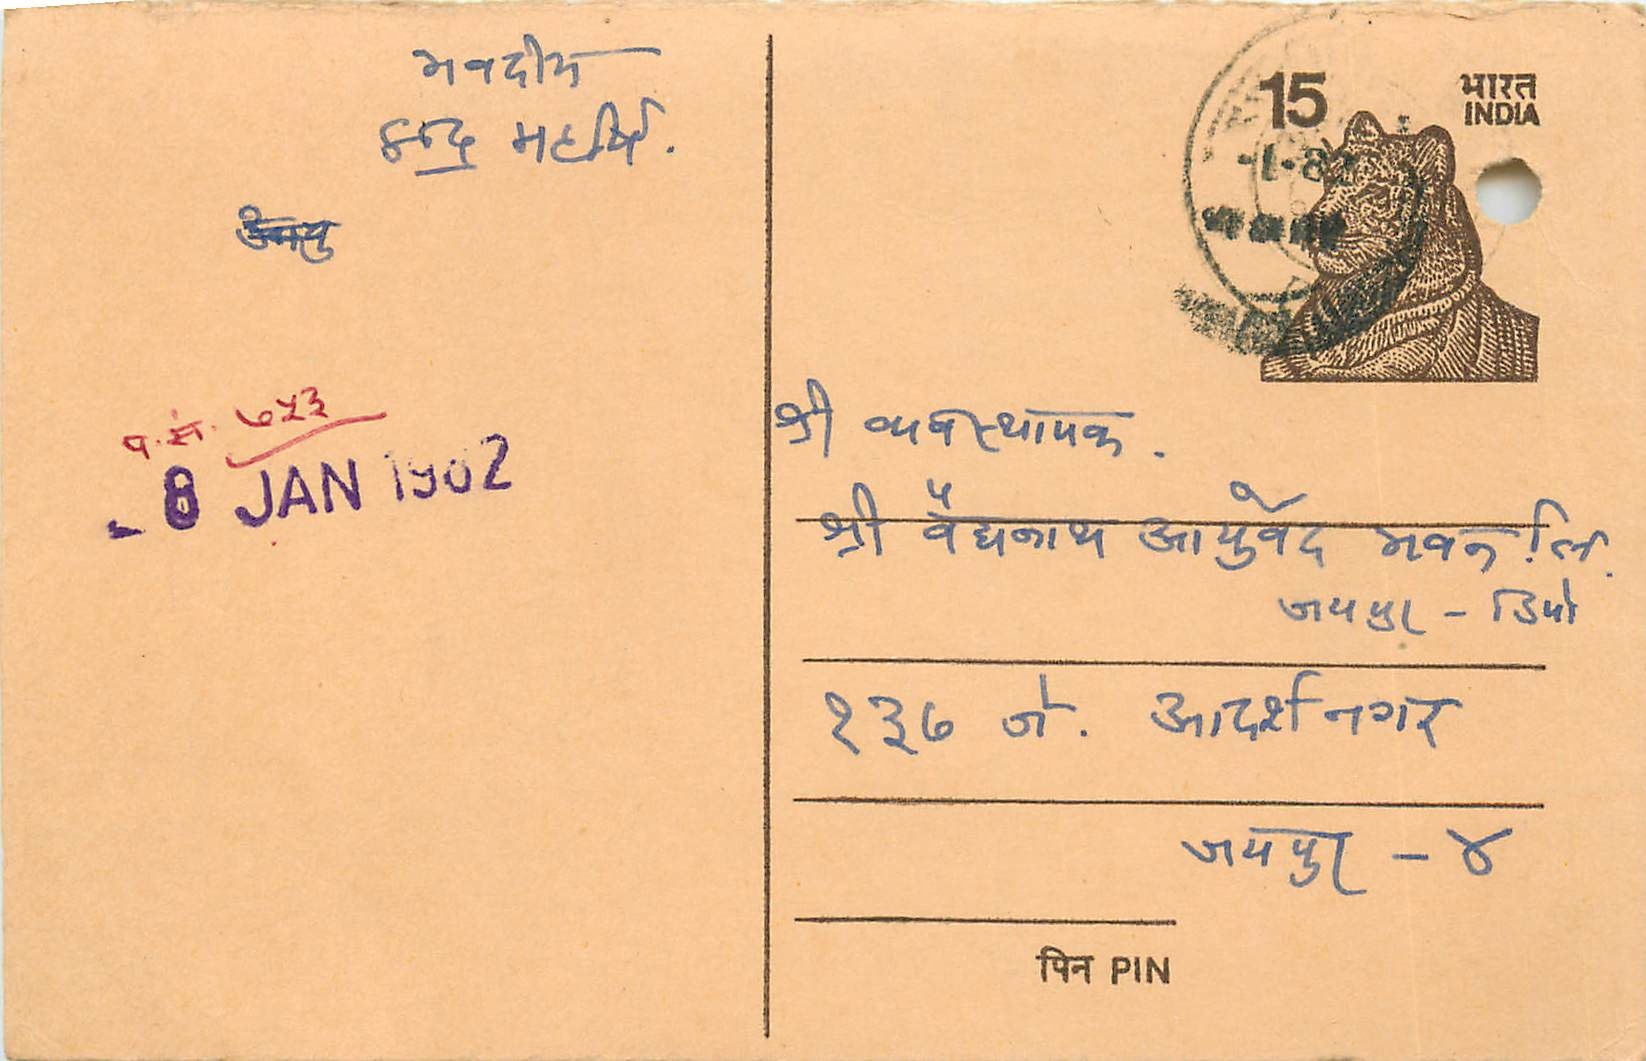 भवदीय
महर्षि.
प. सं. ७५३
- 8 JAN 1982
15
भारत
INDIA
-1-82
श्री व्यवस्थापक.
श्री वैद्यनाथ आयुर्वेद भवन लि.
जयपुर - डिपो
१३७ जे. आदर्शनगर
जयपुर - ४
पिन PIN